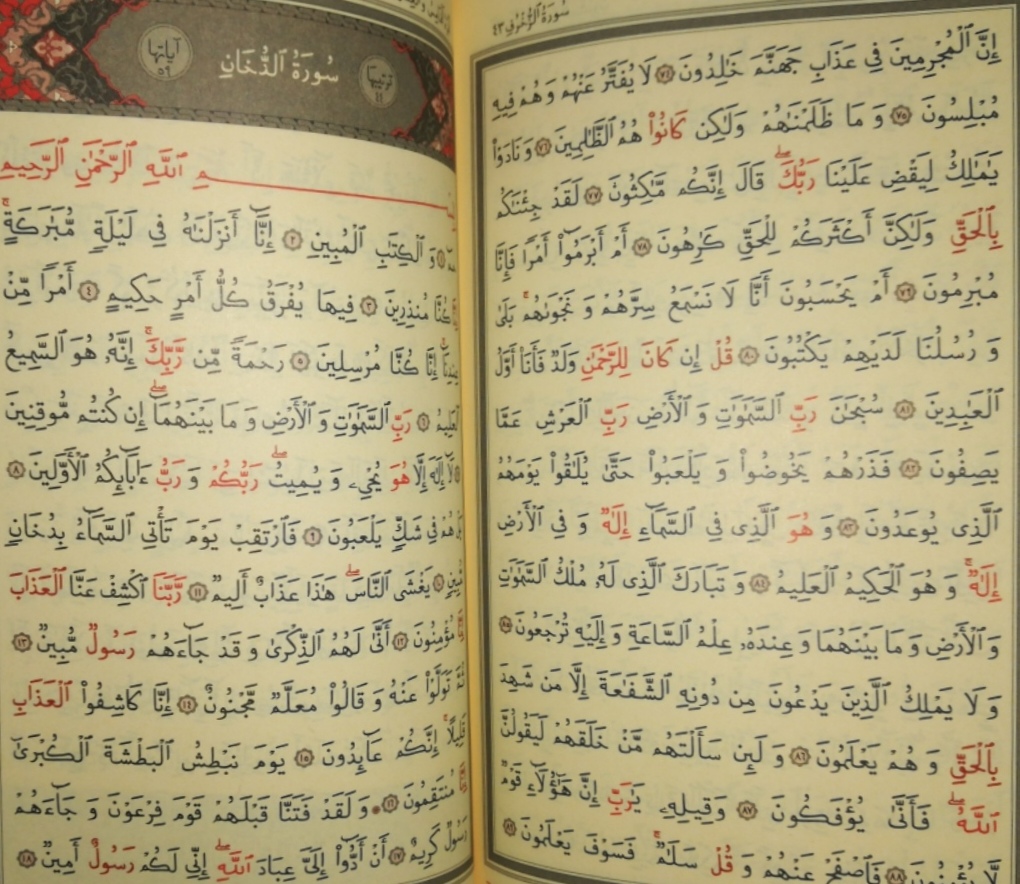 سُورَةُ ٱلزُّخْرُفِ ٤٣
إِنَّ ٱلْمُجْرِمِينَ فِى عَذَابِ جَهَنَّمَ خَٰلِدُونَ ٧٤ لَا يُفَتَّرُ عَنْهُمْ وَ هُمْ فِيهِ
مُبْلِسُونَ ٧٥ وَ مَا ظَلَمْنَٰهُمْ وَلَٰكِن كَانُوا۟ هُمُ ٱلظَّٰلِمِينَ ٧٦ وَ نَادَوْا۟
يَٰمَٰلِكُ لِيَقْضِ عَلَيْنَا رَبُّكَ ۖ قَالَ إِنَّكُم مَّٰكِثُونَ ٧٧ لَقَدْ جِئْنَٰكُم
بِٱلْحَقِّ وَلَٰكِنَّ أَكْثَرَكُمْ لِلْحَقِّ كَٰرِهُونَ ٧٨ أَمْ أَبْرَمُوٓا۟ أَمْرًا فَإِنَّا
مُبْرِمُونَ ٧٩ أَمْ يَحْسَبُونَ أَنَّا لَا نَسْمَعُ سِرَّهُمْ وَ نَجْوَىٰهُم ۚ بَلَىٰ
وَ رُسُلُنَا لَدَيْهِمْ يَكْتُبُونَ ٨٠ قُلْ إِن كَانَ لِلرَّحْمَٰنِ وَلَدٌ فَأَنَا۠ أَوَّلُ
ٱلْعَٰبِدِينَ ٨١ سُبْحَٰنَ رَبِّ ٱلسَّمَٰوَٰتِ وَ ٱلْأَرْضِ رَبِّ ٱلْعَرْشِ عَمَّا
يَصِفُونَ ٨٢ فَذَرْهُمْ يَخُوضُوا۟ وَ يَلْعَبُوا۟ حَتَّىٰ يُلَٰقُوا۟ يَوْمَهُمُ
ٱلَّذِى يُوعَدُونَ ٨٣ وَ هُوَ ٱلَّذِى فِى ٱلسَّمَآءِ إِلَٰهٌ وَ فِى ٱلْأَرْضِ
إِلَٰهٌ ۚ وَ هُوَ ٱلْحَكِيمُ ٱلْعَلِيمُ ٨٤ وَ تَبَارَكَ ٱلَّذِى لَهُۥ مُلْكُ ٱلسَّمَٰوَٰتِ
وَ ٱلْأَرْضِ وَ مَا بَيْنَهُمَا وَ عِندَهُۥ عِلْمُ ٱلسَّاعَةِ وَ إِلَيْهِ تُرْجَعُونَ ٨٥
وَ لَا يَمْلِكُ ٱلَّذِينَ يَدْعُونَ مِن دُونِهِ ٱلشَّفَٰعَةَ إِلَّا مَن شَهِدَ
بِٱلْحَقِّ وَ هُمْ يَعْلَمُونَ ٨٦ وَ لَئِن سَأَلْتَهُم مَّنْ خَلَقَهُمْ لَيَقُولُنَّ
ٱللَّهُ ۖ فَأَنَّىٰ يُؤْفَكُونَ ٨٧ وَقِيلِهِۦ يَٰرَبِّ إِنَّ هَٰٓؤُلَآءِ قَوْمٌ
لَّا يُؤْمِنُونَ ٨٨ فَٱصْفَحْ عَنْهُمْ وَ قُلْ سَلَٰمٌ ۚ فَسَوْفَ يَعْلَمُونَ ٨٩
ترتيبها ٤٤
سُورَةُ ٱلدُّخَانِ
آياتها ٥٩
ٱللَّهِ ٱلرَّحْمَٰنِ ٱلرَّحِيمِ
وَ ٱلْكِتَٰبِ ٱلْمُبِينِ ٢ إِنَّآ أَنزَلْنَٰهُ فِى لَيْلَةٍ مُّبَٰرَكَةٍ ۚ
كُنَّا مُنذِرِينَ ٣ فِيهَا يُفْرَقُ كُلُّ أَمْرٍ حَكِيمٍ ٤ أَمْرًا مِّنْ
إِنَّا كُنَّا مُرْسِلِينَ ٥ رَحْمَةً مِّن رَّبِّكَ ۚ إِنَّهُۥ هُوَ ٱلسَّمِيعُ
ٱلْعَلِيمُ ٦ رَبِّ ٱلسَّمَٰوَٰتِ وَ ٱلْأَرْضِ وَ مَا بَيْنَهُمَآ ۖ إِن كُنتُم مُّوقِنِينَ
لَآ إِلَٰهَ إِلَّا هُوَ يُحْىِۦ وَ يُمِيتُ ۖ رَبُّكُمْ وَ رَبُّ ءَابَآئِكُمُ ٱلْأَوَّلِينَ ٨
هُمْ فِى شَكٍّ يَلْعَبُونَ ٩ فَٱرْتَقِبْ يَوْمَ تَأْتِى ٱلسَّمَآءُ بِدُخَانٍ
مُّبِينٍ ١٠ يَغْشَى ٱلنَّاسَ ۖ هَٰذَا عَذَابٌ أَلِيمٌ ١١ رَّبَّنَا ٱكْشِفْ عَنَّا ٱلْعَذَابَ
مُؤْمِنُونَ ١٢ أَنَّىٰ لَهُمُ ٱلذِّكْرَىٰ وَ قَدْ جَآءَهُمْ رَسُولٌ مُّبِينٌ ١٣
ثُمَّ تَوَلَّوْا۟ عَنْهُ وَ قَالُوا۟ مُعَلَّمٌ مَّجْنُونٌ ١٤ إِنَّا كَاشِفُوا۟ ٱلْعَذَابِ
قَلِيلًا ۚ إِنَّكُمْ عَآئِدُونَ ١٥ يَوْمَ نَبْطِشُ ٱلْبَطْشَةَ ٱلْكُبْرَىٰٓ
مُنتَقِمُونَ ١٦ وَ لَقَدْ فَتَنَّا قَبْلَهُمْ قَوْمَ فِرْعَوْنَ وَ جَآءَهُمْ
رَسُولٌ كَرِيمٌ ١٧ أَنْ أَدُّوٓا۟ إِلَىَّ عِبَادَ ٱللَّهِ ۖ إِنِّى لَكُمْ رَسُولٌ أَمِينٌ ١٨